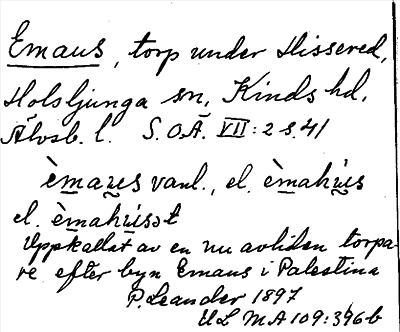 Emaus, torp under Hissered,
Holsljunga sn, Kinds hd,
Älvsb. l. S.O.Ä. VII: 2 s. 41
èmaųes vanl., el. èmahu̇is
el. èmahu̇isət
Uppkallat av en nu avliden torpa-
re efter byn Emaus i Palestina
P. Leander 1897
ULMA 109:396b